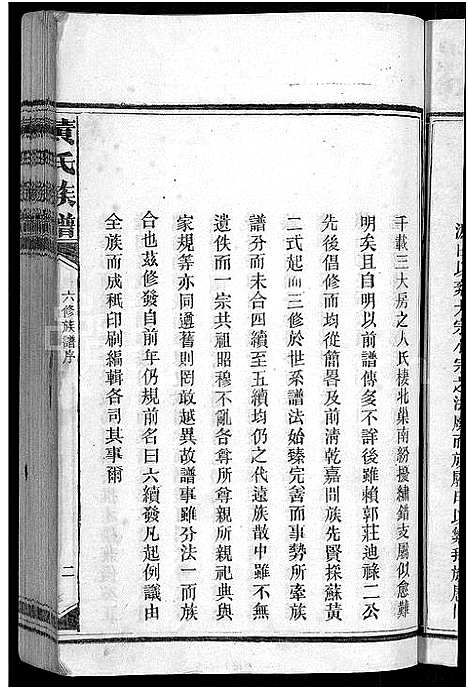 千載三大房之人氏棲北巢南紛擾繡錯支屬似愈難
明矣且自明以前譜傳多不詳後雖賴郭莊迪祿二公
先後倡修而均從簡畧及前淸乾嘉間族先賢採蘇黃
二式起而三修於世系譜法始臻完善而事勢所牽族
譜分而未合四續至五續均仍之代遠族散中雖不無
遺佚而一宗共祖昭穆不亂各尊所尊親所親祀典與
家規等亦同遵舊則罔敢越異故譜事雖分法一而族
合也茲修發自前年仍規前名曰六續發凡起例議由
全族而成秪印刷編輯各司其事爾
黃氏族譜
六修族譜序
二